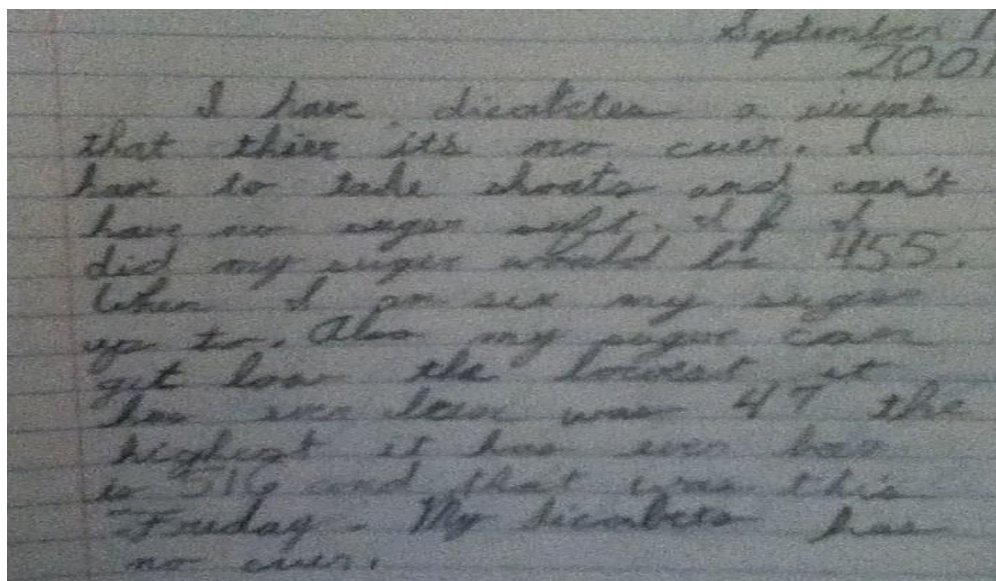 September 1
2001
I have diabetes a
that thier its no cuer. I
have to take shoats and can't
have no suger suft. If I
did my suger would be 455.
When I am six my suger
up to. Also my suger can
get low the lowest it
has ever been was 47 the
highest it has ever been
is 516 and that was this
Friday. My has
no cuer.